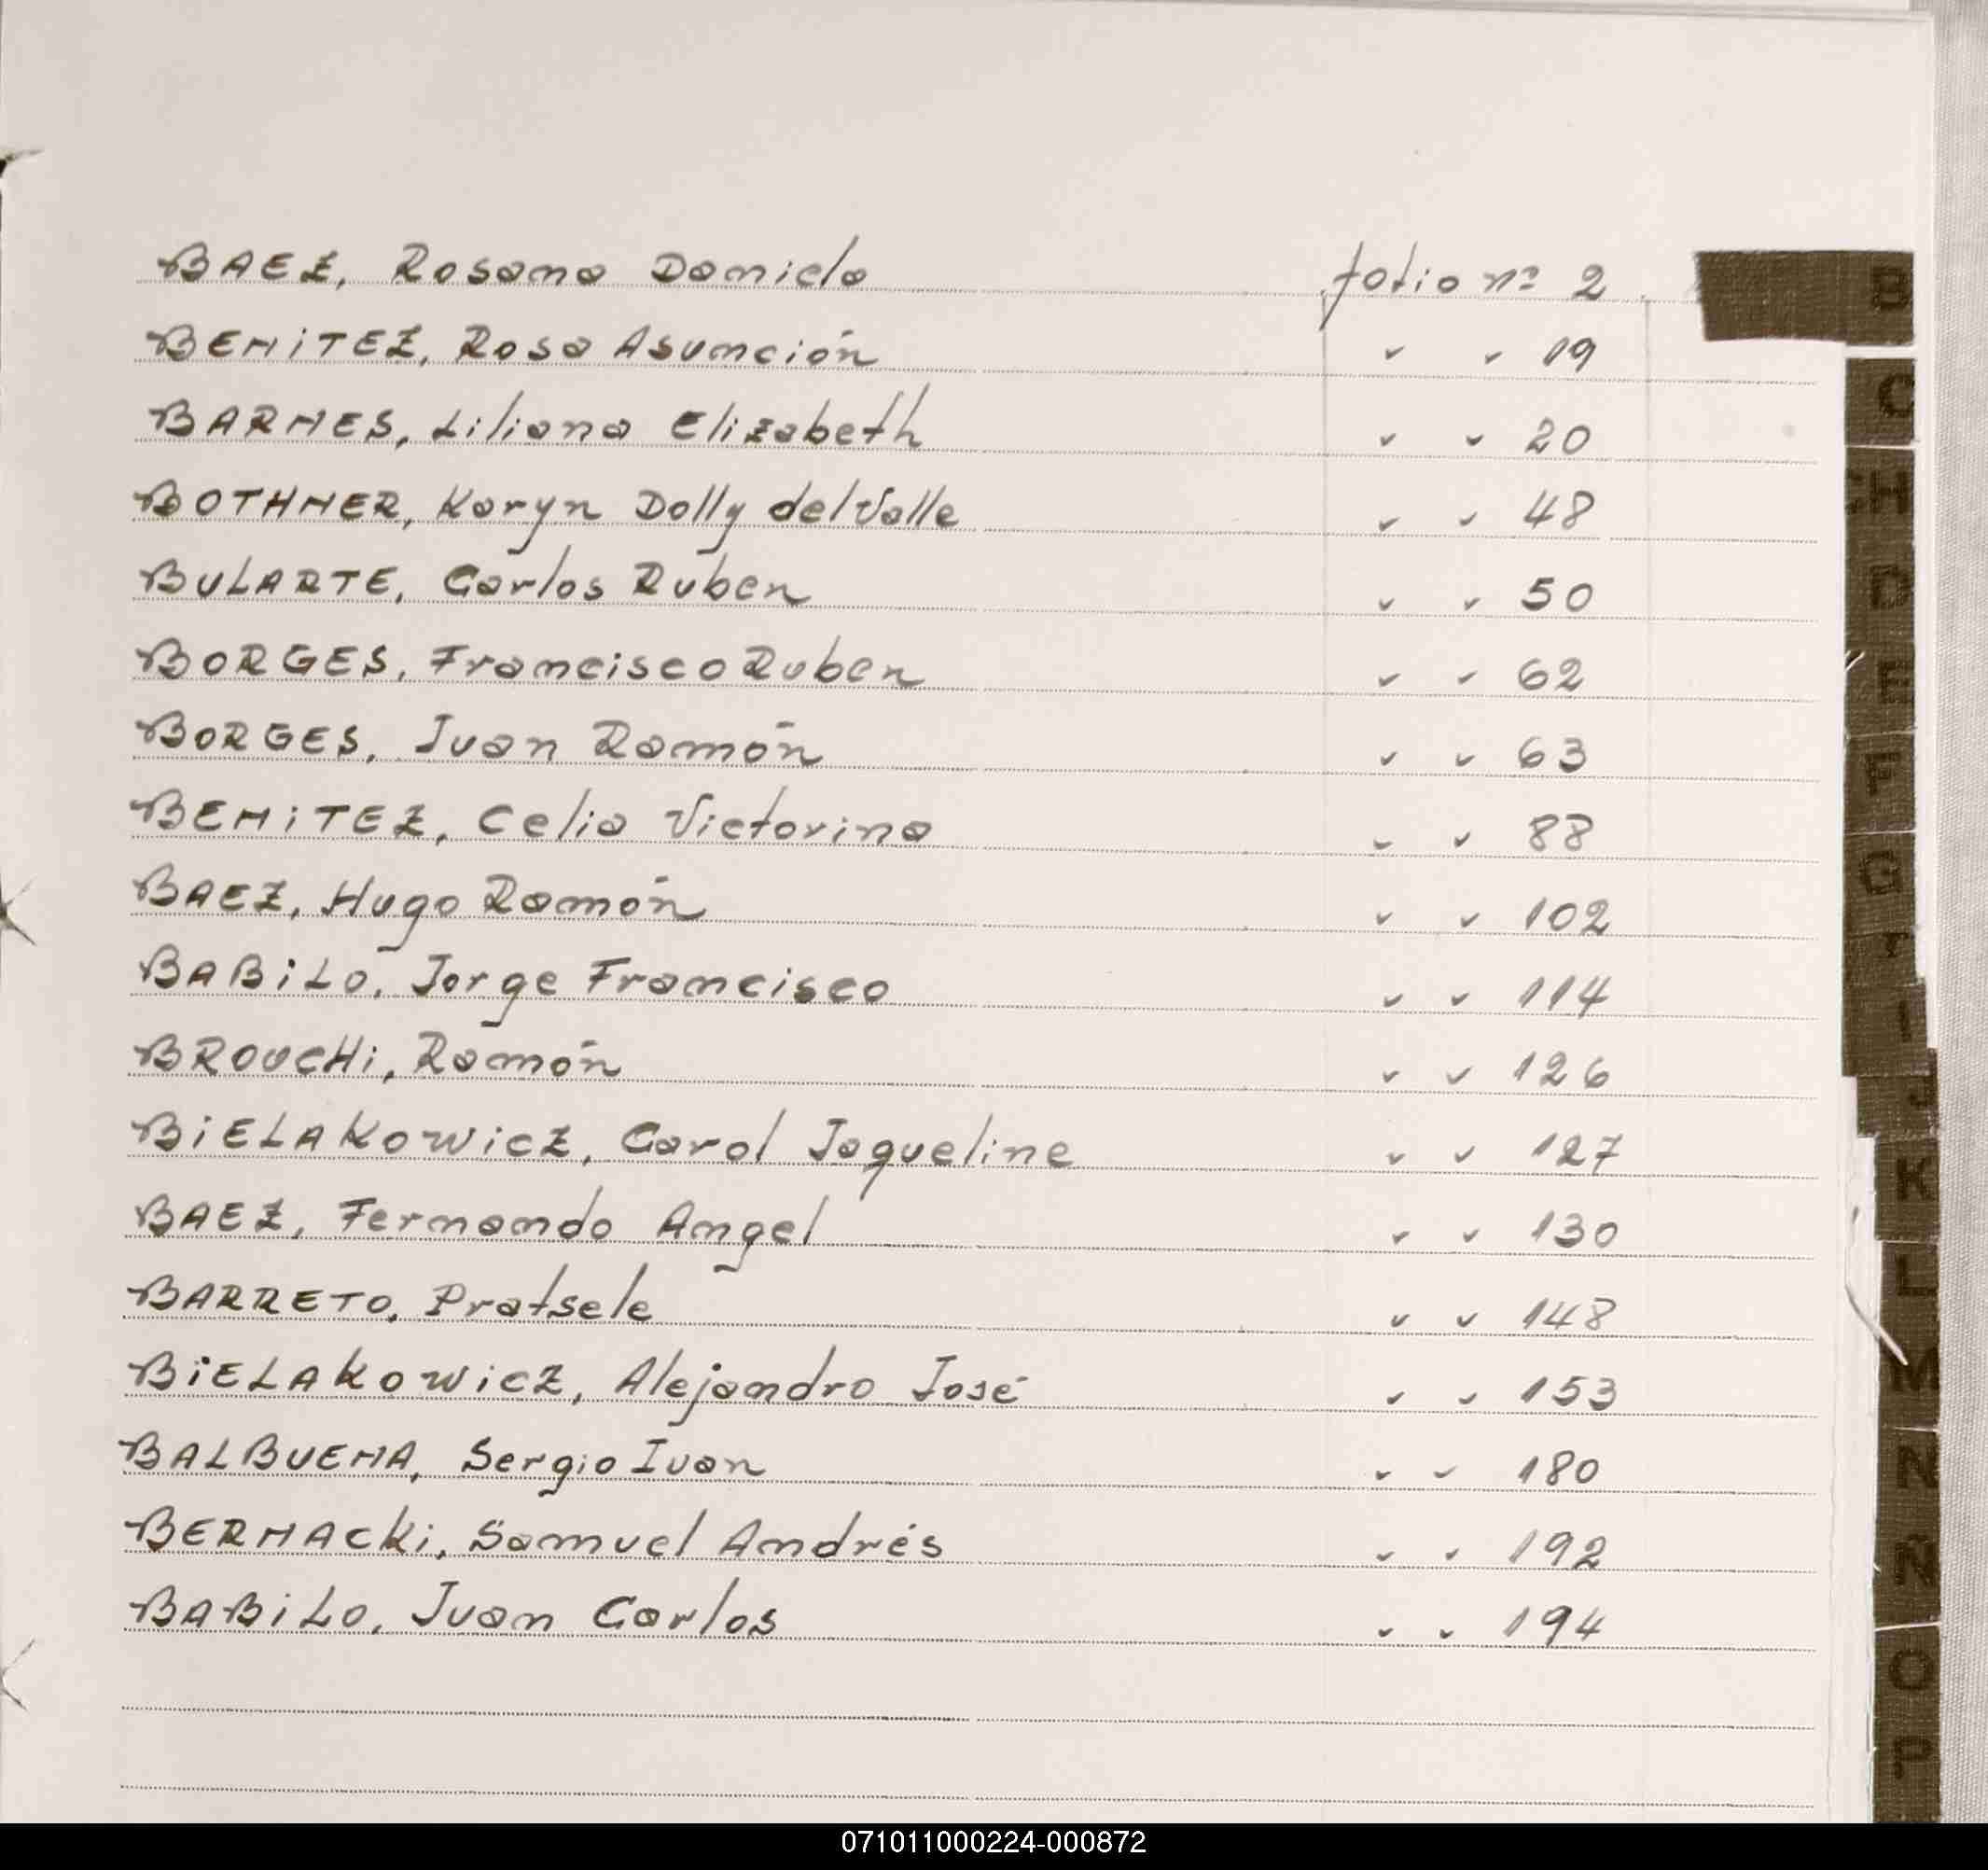 BAEZ, Rosana Daniela folio nº 2
BENITEZ, Rosa Asunción " " 19
BARNES, Liliana Elizabeth " " 20
BOTHNER, Karyn Dolly del Valle " " 48
BULARTE, Carlos Ruben " " 50
BORGES, Francisco Ruben " " 62
BORGES, Juan Ramón " " 63
BENITEZ, Celia Victorina " " 88
BAEZ, Hugo Ramón " " 102
BABiLO, Jorge Francisco " " 114
BROUCHi, Ramón " " 126
BiELAKOWicZ, Carol Jaqueline " " 127
BAEZ, Fernando Angel " " 130
BARRETO, Pratsele " " 148
BiELAKOWicZ, Alejandro José " " 153
BALBUENA, Sergio Ivan " " 180
BERNACKi, Samuel Andrés " " 192
BABiLO, Juan Carlos " " 194
B
C
CH
D
E
F
G
I
J
K
L
M
N
Ñ
O
P
071011000224-000872